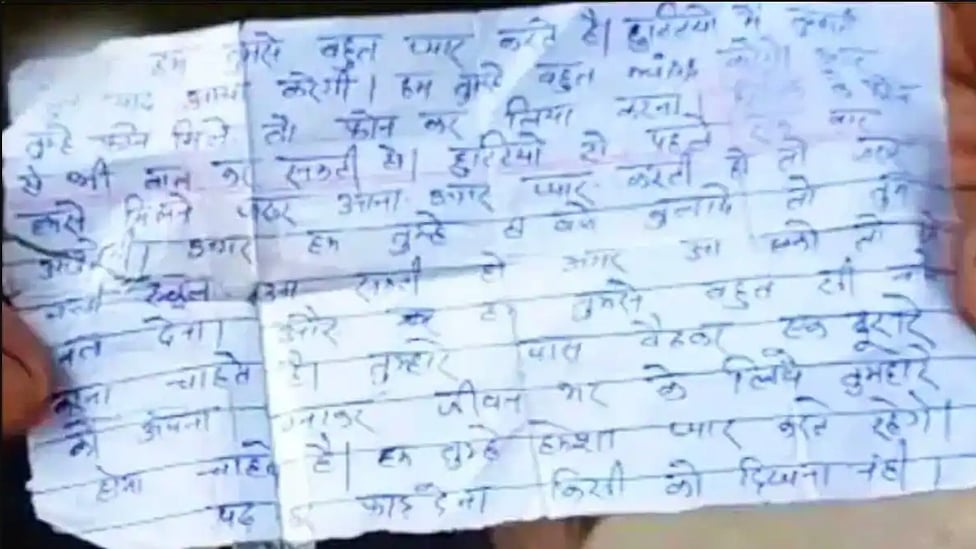 हम तुमसे बहुत प्यार करते है। छुटिटयो मे
याद आया करेगी। हम तुम्हे बहुत करेगे।
तुम्हे फोन मिले तो फोन कर लिया करना।
से भी बात कर सकती हो। छुटिटयो से पहले एक बार
हमसे मिलने जरूर आना अगर प्यार करती हो तो जरूर
अगर हम तुम्हे बजे बुलादे तो तुम
स्कूल आ सकती हो अगर आ सको तो
बता देना। और हम तुमसे बहुत सी बाते
करना चाहते है। तुम्हारे पास बैठकर एक दूसरे
को अपना बनाकर जीवन भर के लिये तुमहारे
होना चाहते है। हम तुम्हे हमेशा प्यार करते रहेगे।
पढ़ कर फाड़ देना किसी को दिखाना नही।